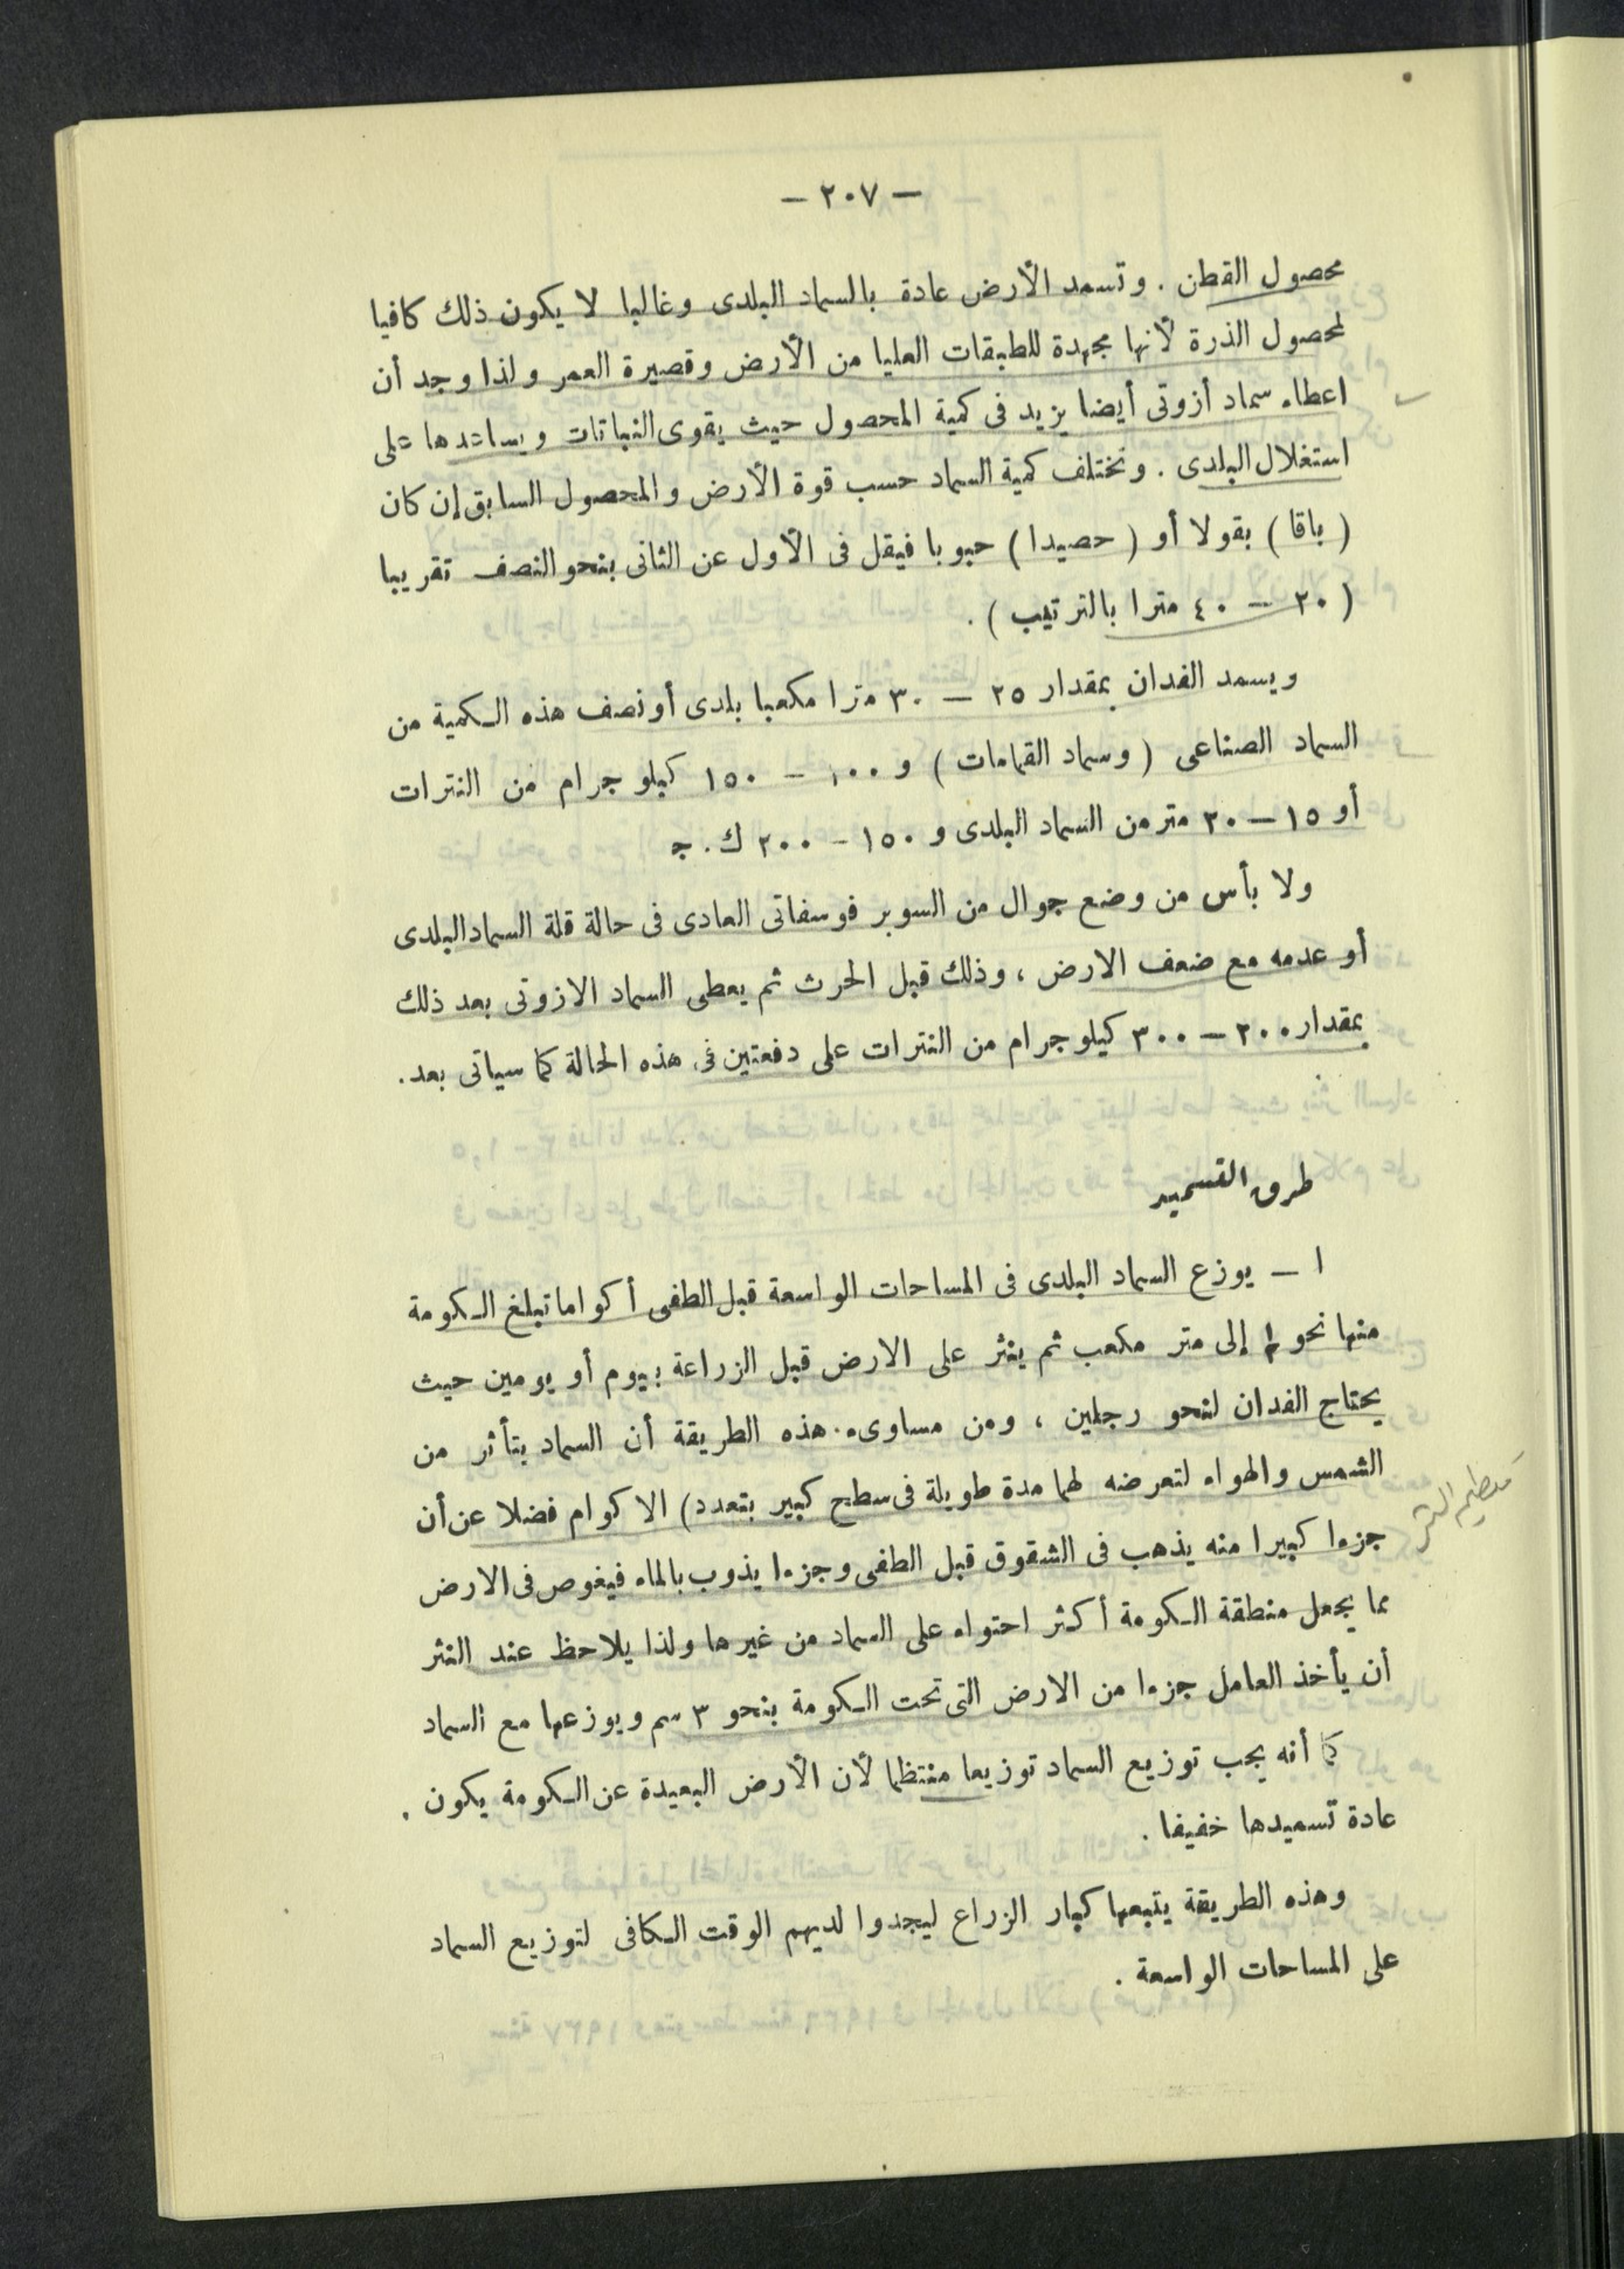 — ٢٠٧ —
محصول القطن . وتسمد الأرض عادة بالسماد البلدى وغالبا لا يكون ذلك كافيا
لمحصول الذرة لأنها مجهدة للطبقات العليا من الأرض وقصيرة العمر ولذا وجد أن
اعطاء سماد أزوتى أيضا يزيد فى كمية المحصول حيث يقوى النباتات ويساعدها على
استغلال البلدى . وتختلف كمية السماد حسب قوة الأرض والمحصول السابق إن كان
( باقا ) بقولا أو ( حصيدا ) حبوبا فيقل فى الأول عن الثانى بنحو النصف تقريبا
( ٢٠ — ٤٠ مترا بالترتيب ) .
ويسمد الفدان بمقدار ٢٥ — ٣٠ مترا مكعبا بلدى أو نصف هذه الكمية من
السماد الصناعى ( وسماد القمامات ) و ١٠٠ — ١٥٠ كيلو جرام من النترات
أو ١٥ — ٢٠ متر من السماد البلدى و ١٥٠ — ٢٠٠ ك . ج
ولا بأس من وضع جوال من السوبر فوسفاتى العادى فى حالة قلة السماد البلدى
أو عدمه مع ضعف الارض ، وذلك قبل الحرث ثم يعطى السماد الازوتى بعد ذلك
بمقدار ٢٠٠ — ٣٠٠ كيلو جرام من النترات على دفعتين فى هذه الحالة كما سياتى بعد .
طرق التسميد
١ — يوزع السماد البلدى فى المساحات الواسعة قبل الطفى أكواما تبلغ الكومة
منها نحو إلى متر مكعب ثم ينثر على الارض قبل الزراعة بيوم أو يومين حيث
يحتاج الفدان لنحو رجلين ، ومن مساوىء هذه الطريقة أن السماد يتأثر من
الشمس والهواء لتعرضه لهما مدة طويلة فى سطح كبير بتعدد ) الاكوام فضلا عن أن
جزءا كبيرا منه يذهب فى الشقوق قبل الطفى وجزءا يذوب بالماء فيغوص فى الارض
مما يجعل منطقة الكومة أكثر احتواء على السماد من غيرها ولذا يلاحظ عند النثر
أن يأخذ العامل جزءا من الارض التى تحت الكومة بنحو ٣ سم ويوزعها مع السماد
كما أنه يجب توزيع السماد توزيعا منتظما لأن الأرض البعيدة عن الكومة يكون .
عادة تسميدها خفيفا .
وهذه الطريقة يتبعها كبار الزراع ليجدوا لديهم الوقت الكافى لتوزيع السماد
على المساحات الواسعة .